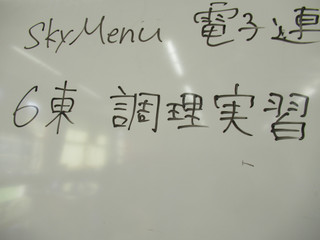 SkyMenu 電子連
6東 調理実習